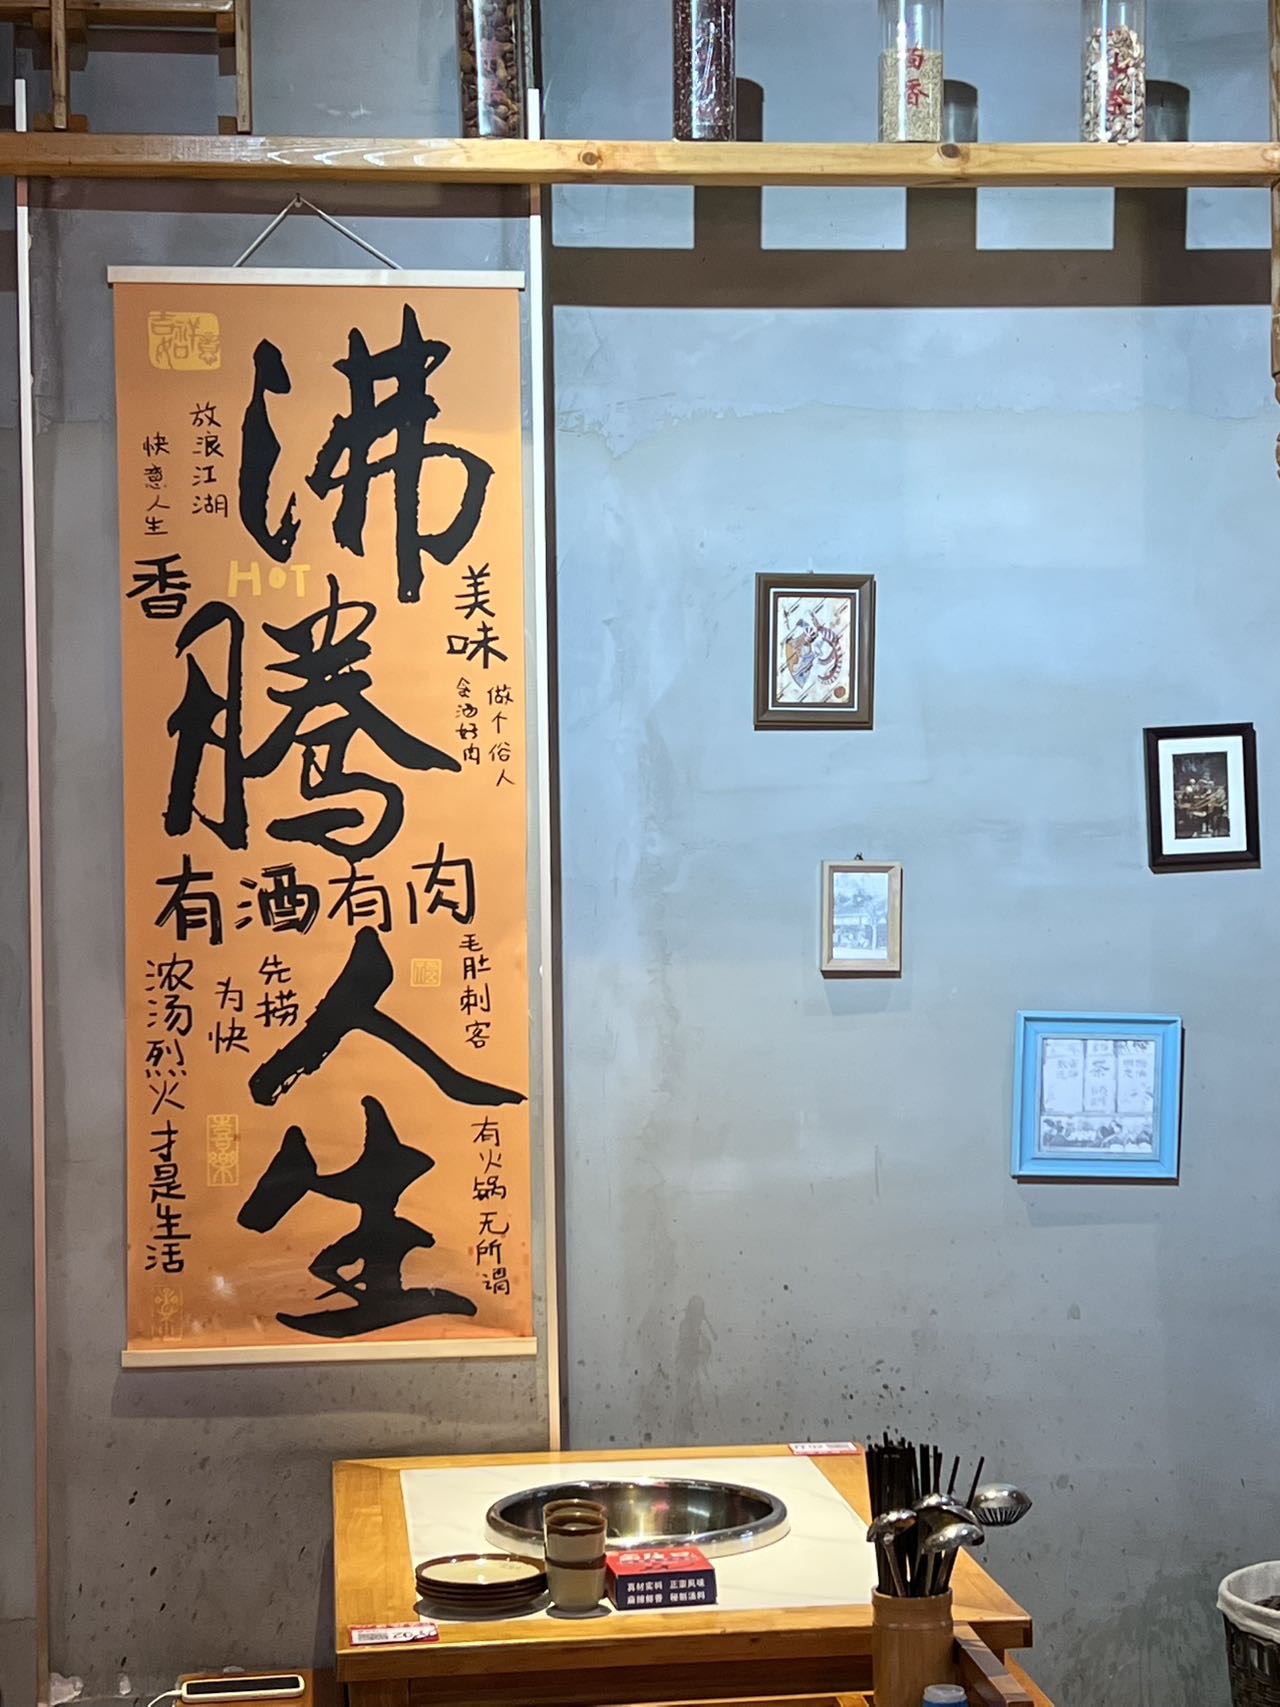 茴香
吉祥如意
沸腾人生
放浪江湖
快意人生
HOT
香
美味
做个俗人
贪酒好肉
有酒有肉
毛肚刺客
先捞
为快
浓汤烈火才是生活
喜樂
有火锅无所谓
茶
真材实料 正宗风味
麻辣鲜香 秘制汤料